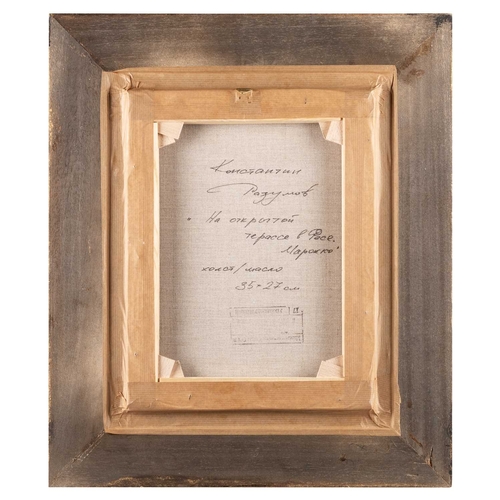 Константин
Разумов
"На открытой
терассе в Фесе.
Марокко"
холст/масло
35×27 см